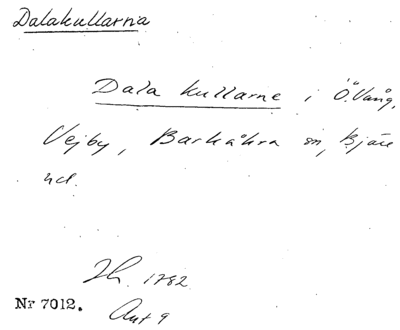 Dalakullarna
Dala kullarne i Ö. Vång,
Vejby, Barkåkra sn, Bjäre
hd.
Lh. 1782
Nr 7012. Akt 9